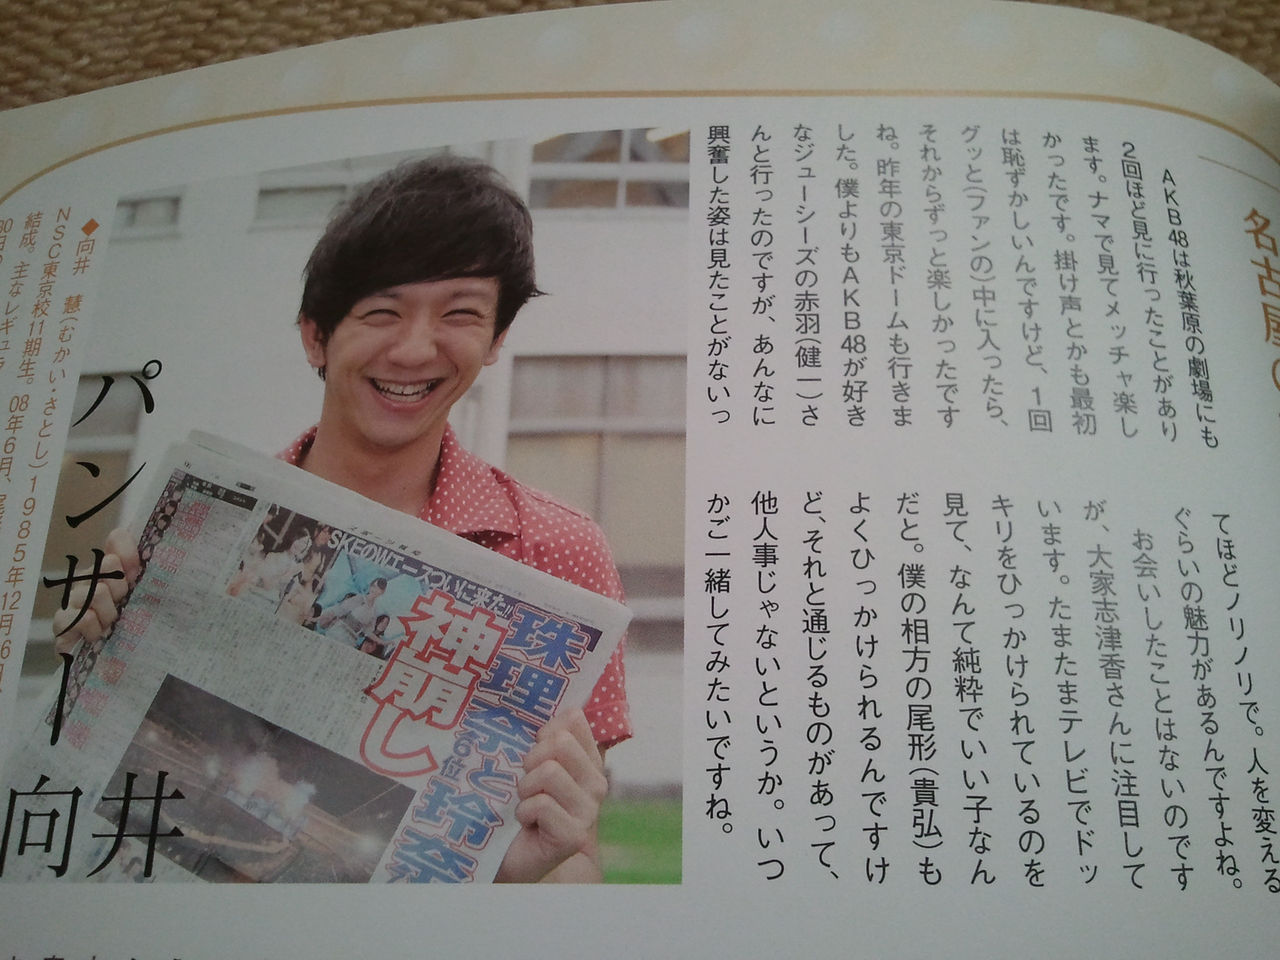 名古屋の
AKB48は秋葉原の劇場にも
2回ほど見に行ったことがあり
ます。ナマで見てメッチャ楽し
かったです。掛け声とかも最初
は恥ずかしいんですけど、1回
グッと(ファンの)中に入ったら、
それからずっと楽しかったです
ね。昨年の東京ドームも行きま
した。僕よりもAKB48が好き
なジューシーズの赤羽(健一)さ
んと行ったのですが、あんなに
興奮した姿は見たことがないっ
てほどノリノリで。人を変える
ぐらいの魅力があるんですよね。
お会いしたことはないのです
が、大家志津香さんに注目して
います。たまたまテレビでドッ
キリをひっかけられているのを
見て、なんて純粋でいい子なん
だと。僕の相方の尾形(貴弘)も
よくひっかけられるんですけ
ど、それと通じるものがあって、
他人事じゃないというか。いつ
かご一緒してみたいですね。
SKEのWエースついに来た!!
珠理奈と玲奈
6位
神崩し
パンサー
向井
◆向井 慧(むかい・さとし)1985年12月16日
NSC東京校11期生。08年6月、尾
結成。主なレギュラ